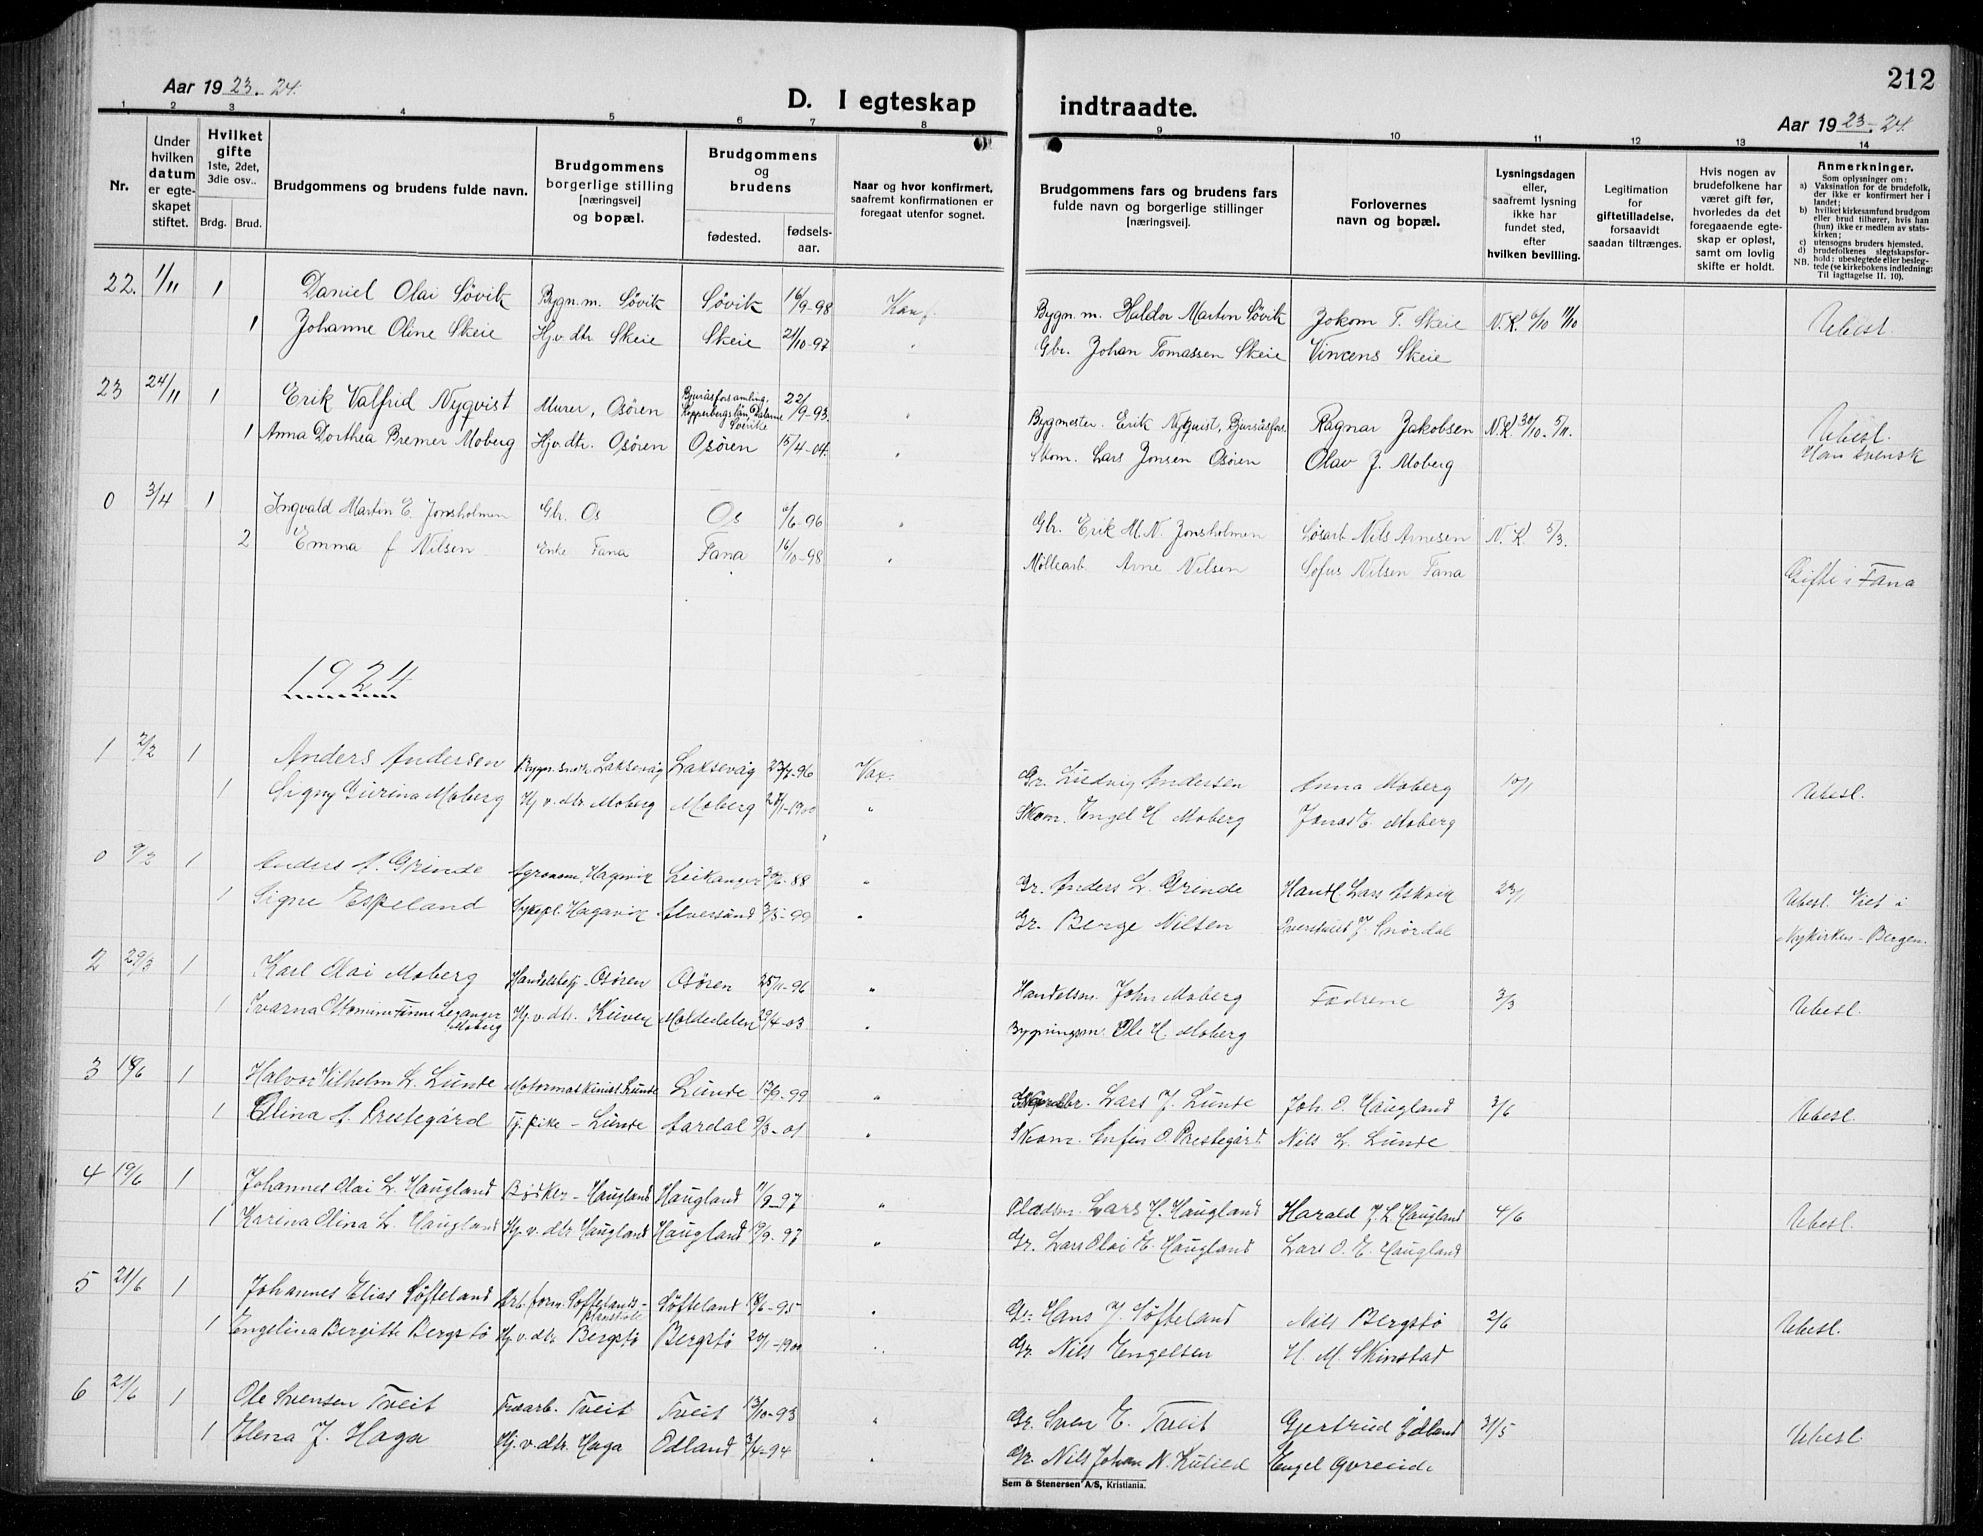 212
Aar 19 23-24.
D. I egteskap indtraadte.
Aar 19 23-24.
1 2 3 4 5 6 7 8 9 10 11 12 13 14
Nr.
Under hvilken datum er egteskapet stiftet.
Hvilket gifte 1ste, 2det, 3die osv..
Brdg. Brud.
Brudgommens og brudens fulde navn.
Brudgommens borgerlige stilling [næringsvei] og bopæl.
Brudgommens og brudens
fødested. fødsels-aar.
Naar og hvor konfirmert, saafremt konfirmationen er foregaat utenfor sognet.
Brudgommens fars og brudens fars fulde navn og borgerlige stillinger [næringsvei].
Forlovernes navn og bopæl.
Lysningsdagen eller, saafremt lysning ikke har fundet sted, efter hvilken bevilling.
Legitimation for giftetilladelse. forsaavidt saadan tiltrænges.
Hvis nogen av brudefolkene har været gift før, hvorledes da det foregaaende egteskap er opløst, samt om lovlig skifte er holdt.
Anmerkninger.
Som oplysninger om:
a) Vaksination for de brudefolk, der ikke er konfirmert her i landet;
b) hvilket kirkesamfund brudgom eller brud tilhører, hvis han (hun) ikke er medlem av statskirken;
c) utensogns bruders hjemsted.
d) brudefolkenes slegtskapsforhold: ubeslegtede eller beslegtede (se kirkebokens indledning: NB. Til iagttagelse II. 10).
22. 1/11 1 Daniel Olai Søvik Bygn.m. Søvik Søvik 16/9-98 Konf. Bygn.m. Haldor Martin Søvik Jokom T. Skeie N.K. 6/10 11/10 Ubesl.
1 Johanne Oline Skeie Hjv. dtr Skeie Skeie 21/10-97 " Gbr. Johan Tomassen Skeie Vincens Skeie
23 24/11 1 Erik Valfrid Nyqvist Murer, Osøren Bjuråsforsamling, Kopperbergs län Dalarne Sverike 22/9-93. " Bygmester. Erik Nyqvist, Bjuråsfors. Ragnar Jakobsen N.K. 30/10. 5/11. Ubesl. Han Svensk
1 Anna Dorthea Bremer Moberg Hjv. dtr. Osøren Osøren 15/4-04. " Skom. Lars Jonsen Osøren Olav J. Moberg
0 3/4 1 Ingvald Martin E. Jonsholmen Gbr. Os Os /6-96 " Gbr. Erik M.N. Jonsholmen Løsarb Nils Arnesen N.K 5/3.
2 Emma f Nilsen Enke Fana Fana 16/10-98 " Møllearb Arne Nilsen Sofus Nilsen Fana Gifte i Fana
1924
1 2/2 1 Anders Andersen Bygn. snek. Laksevåg Laksevåg -96 Vax. Gr. Ludvig Andersen Anna Moberg 10/1 Ubesl.
1 Signy Gurina Moberg Hj.v.dtr Moberg Moberg 28/11-1900 " Skom. Engel H Moberg Jonas E. Moberg
0 9/2 1 Anders A. Grinde Agronom. Hagavik Leikanger -88 " Gr. Anders L. Grinde Handl. Lars Askvik 23/1 Ubesl. Viet i
1 Signe Espeland Sykepl. Hagavik Alversund 3/5-99 " Gr. Berge Nilsen J. Snørdal Nykirken-Bergen.
2 29/3 1 Karl Olai Moberg Handelsbetj-Osøren Osøren 25/11-96 " Handelsm. John Moberg Fædrene 3/3 Ubesl.
1 Ivarna Ottomine Finne Leganger Moberg Hj.v.dtr. Kuven Moldedalen 29/4-03 " Bygningsm. Ole H. Moberg
3 18/6 1 Halvor Vilhelm L. Lunde Motormaskinist Lunde Lunde 13/9-99 " Lars J. Lunde Joh. O. Haugland 3/6 Ubesl.
1 Olina A. Prestegård Tj. pike - Lunde Aardal 9/3-01 " Skom. Anfin O. Prestegård. Nils L. Lunde
4 19/6 1 Johannes Olai L. Haugland Bøsker-Haugland Haugland 11/9-97 " Pladsm. Lars H. Haugland Harald J. L. Haugland 4/6 Ubesl.
1 Karina Olina L. Haugland Hj.v.dtr Haugland Haugland 19/9-97 " Gr. Lars Olai E. Haugland Lars O. E. Haugland
5 21/6 1 Johannes Elias Søfteland Arb.form. Søftelands-planskole Søfteland 18/6-95 " Gr. Hans J. Søfteland Nils Bergstø 2/6 Ubesl.
1 Engelina Bergitte Bergstø Hj.v.dtr Bergstø Bergstø 20/11-1900 " Gr. Nils Engelsen H. M. Skinstad
6 21/6 1 Ole Svensen Tveit Tveit Tveit 13/10-93 " Gr. Sven E. Tveit Gjertrud Ødland 31/5 Ubesl.
1 Elena J. Haga Hj.v.dtr. Haga Odland 3/4-94 " Gr. Nils Johan N. Kulild Engel
Sem & Stenersen A/S, Kristiania.